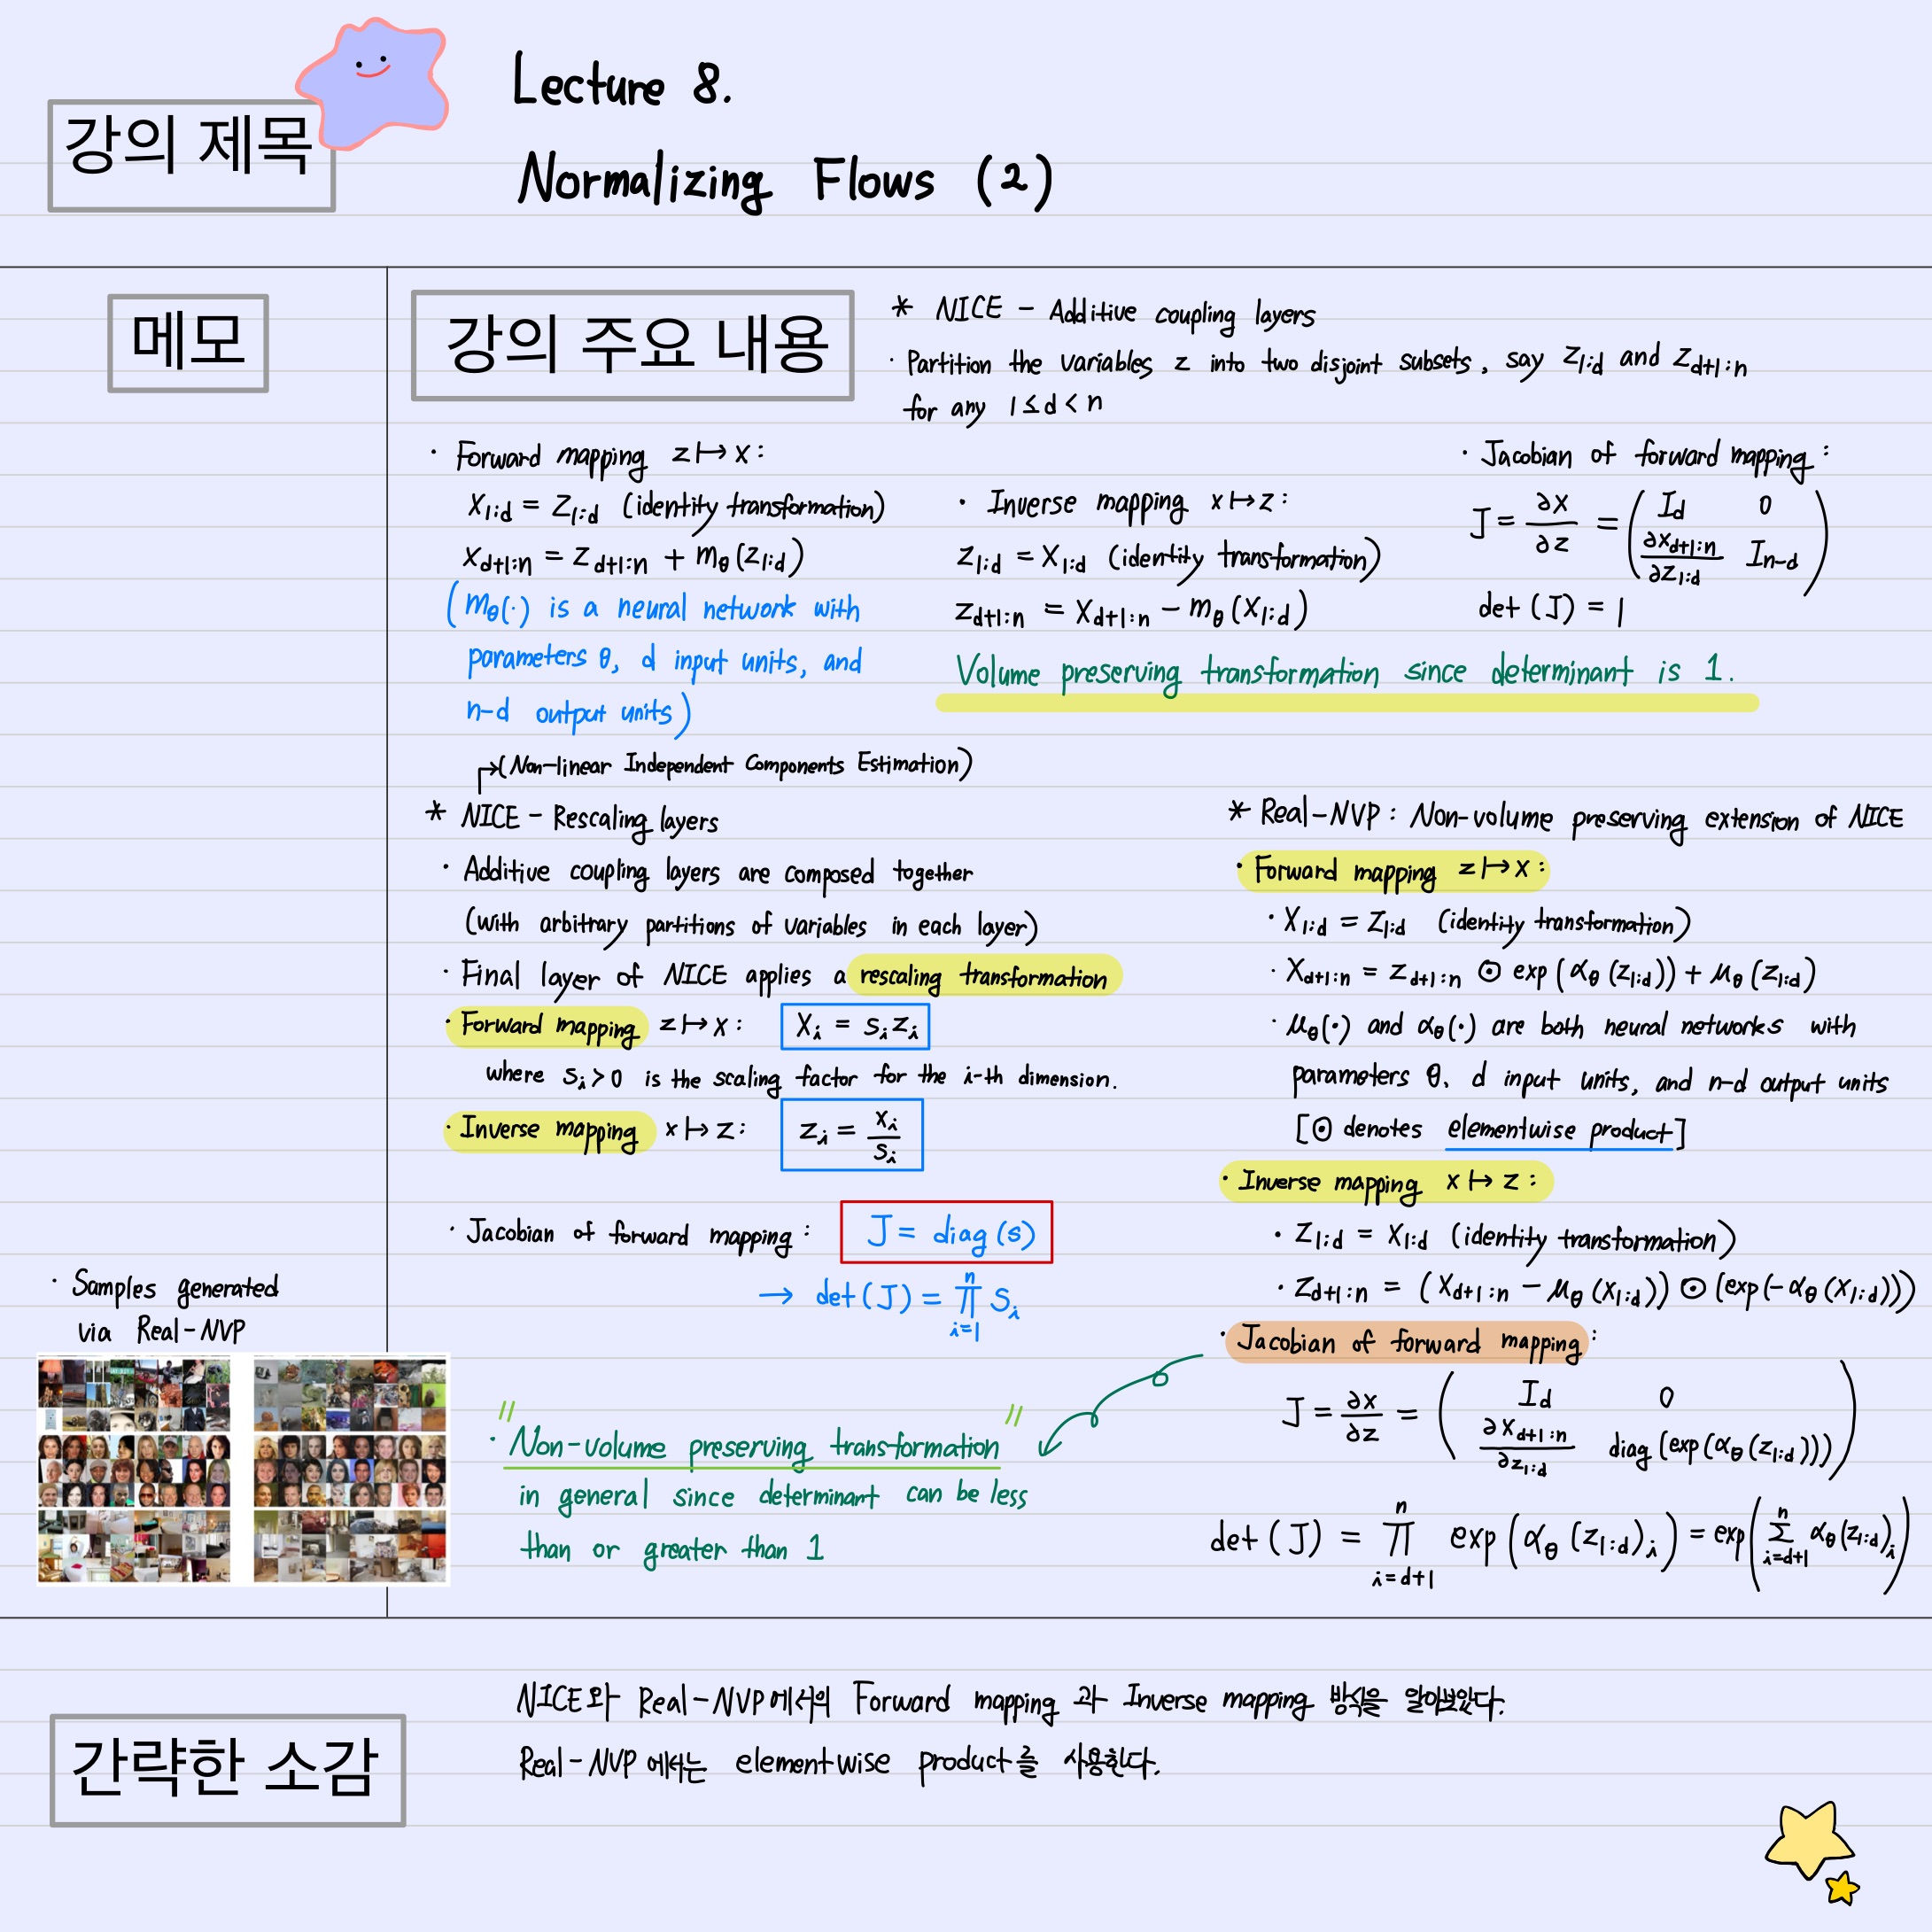 강의 제목
Lecture 8.
Normalizing Flows (2)
메모
강의 주요 내용
* NICE - Additive coupling layers
· Partition the variables z into two disjoint subsets, say z₁:d and z_d+1:n
for any 1 ≤ d < n
· Forward mapping z ↦ x :
x₁:d = z₁:d (identity transformation)
x_d+1:n = z_d+1:n + m_θ(z₁:d)
(m_θ(·) is a neural network with
parameters θ, d input units, and
n-d output units)
· Inverse mapping x ↦ z :
z₁:d = x₁:d (identity transformation)
z_d+1:n = x_d+1:n - m_θ(x₁:d)
· Jacobian of forward mapping :
J = ∂x/∂z = ( I_d 0
∂x_d+1:n/∂z₁:d I_n-d )
det(J) = 1
Volume preserving transformation since determinant is 1.
→(Non-linear Independent Components Estimation)
* NICE - Rescaling layers
· Additive coupling layers are composed together
(with arbitrary partitions of variables in each layer)
· Final layer of NICE applies a rescaling transformation
· Forward mapping z ↦ x : x_i = s_i z_i
where s_i > 0 is the scaling factor for the i-th dimension.
· Inverse mapping x ↦ z : z_i = x_i/s_i
· Jacobian of forward mapping : J = diag(s)
→ det(J) = ∏_{i=1}^{n} s_i
* Real-NVP : Non-volume preserving extension of NICE
· Forward mapping z ↦ x :
· x₁:d = z₁:d (identity transformation)
· x_d+1:n = z_d+1:n ⊙ exp(α_θ(z₁:d)) + μ_θ(z₁:d)
· μ_θ(·) and α_θ(·) are both neural networks with
parameters θ, d input units, and n-d output units
[⊙ denotes elementwise product]
· Inverse mapping x ↦ z :
· z₁:d = x₁:d (identity transformation)
· z_d+1:n = (x_d+1:n - μ_θ(x₁:d)) ⊙ (exp(-α_θ(x₁:d)))
· Jacobian of forward mapping :
J = ∂x/∂z = ( I_d 0
∂x_d+1:n/∂z₁:d diag(exp(α_θ(z₁:d))) )
det(J) = ∏_{i=d+1}^{n} exp(α_θ(z₁:d)_i) = exp(∑_{i=d+1}^{n} α_θ(z₁:d)_i)
"· Non-volume preserving transformation"
in general since determinant can be less
than or greater than 1
· Samples generated
via Real-NVP
간략한 소감
NICE와 Real-NVP에서의 Forward mapping 과 Inverse mapping 방식을 알아보았다.
Real-NVP에서는 elementwise product를 사용한다.